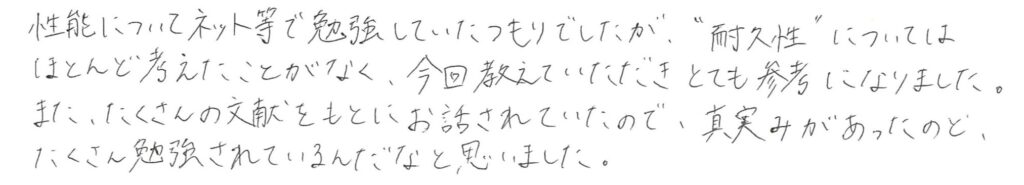 性能についてネット等で勉強していたつもりでしたが、"耐久性"については
ほとんど考えたことがなく、今回教えていただきとても参考になりました。
また、たくさんの文献をもとにお話されていたので、真実みがあったのと、
たくさん勉強されているんだなと思いました。